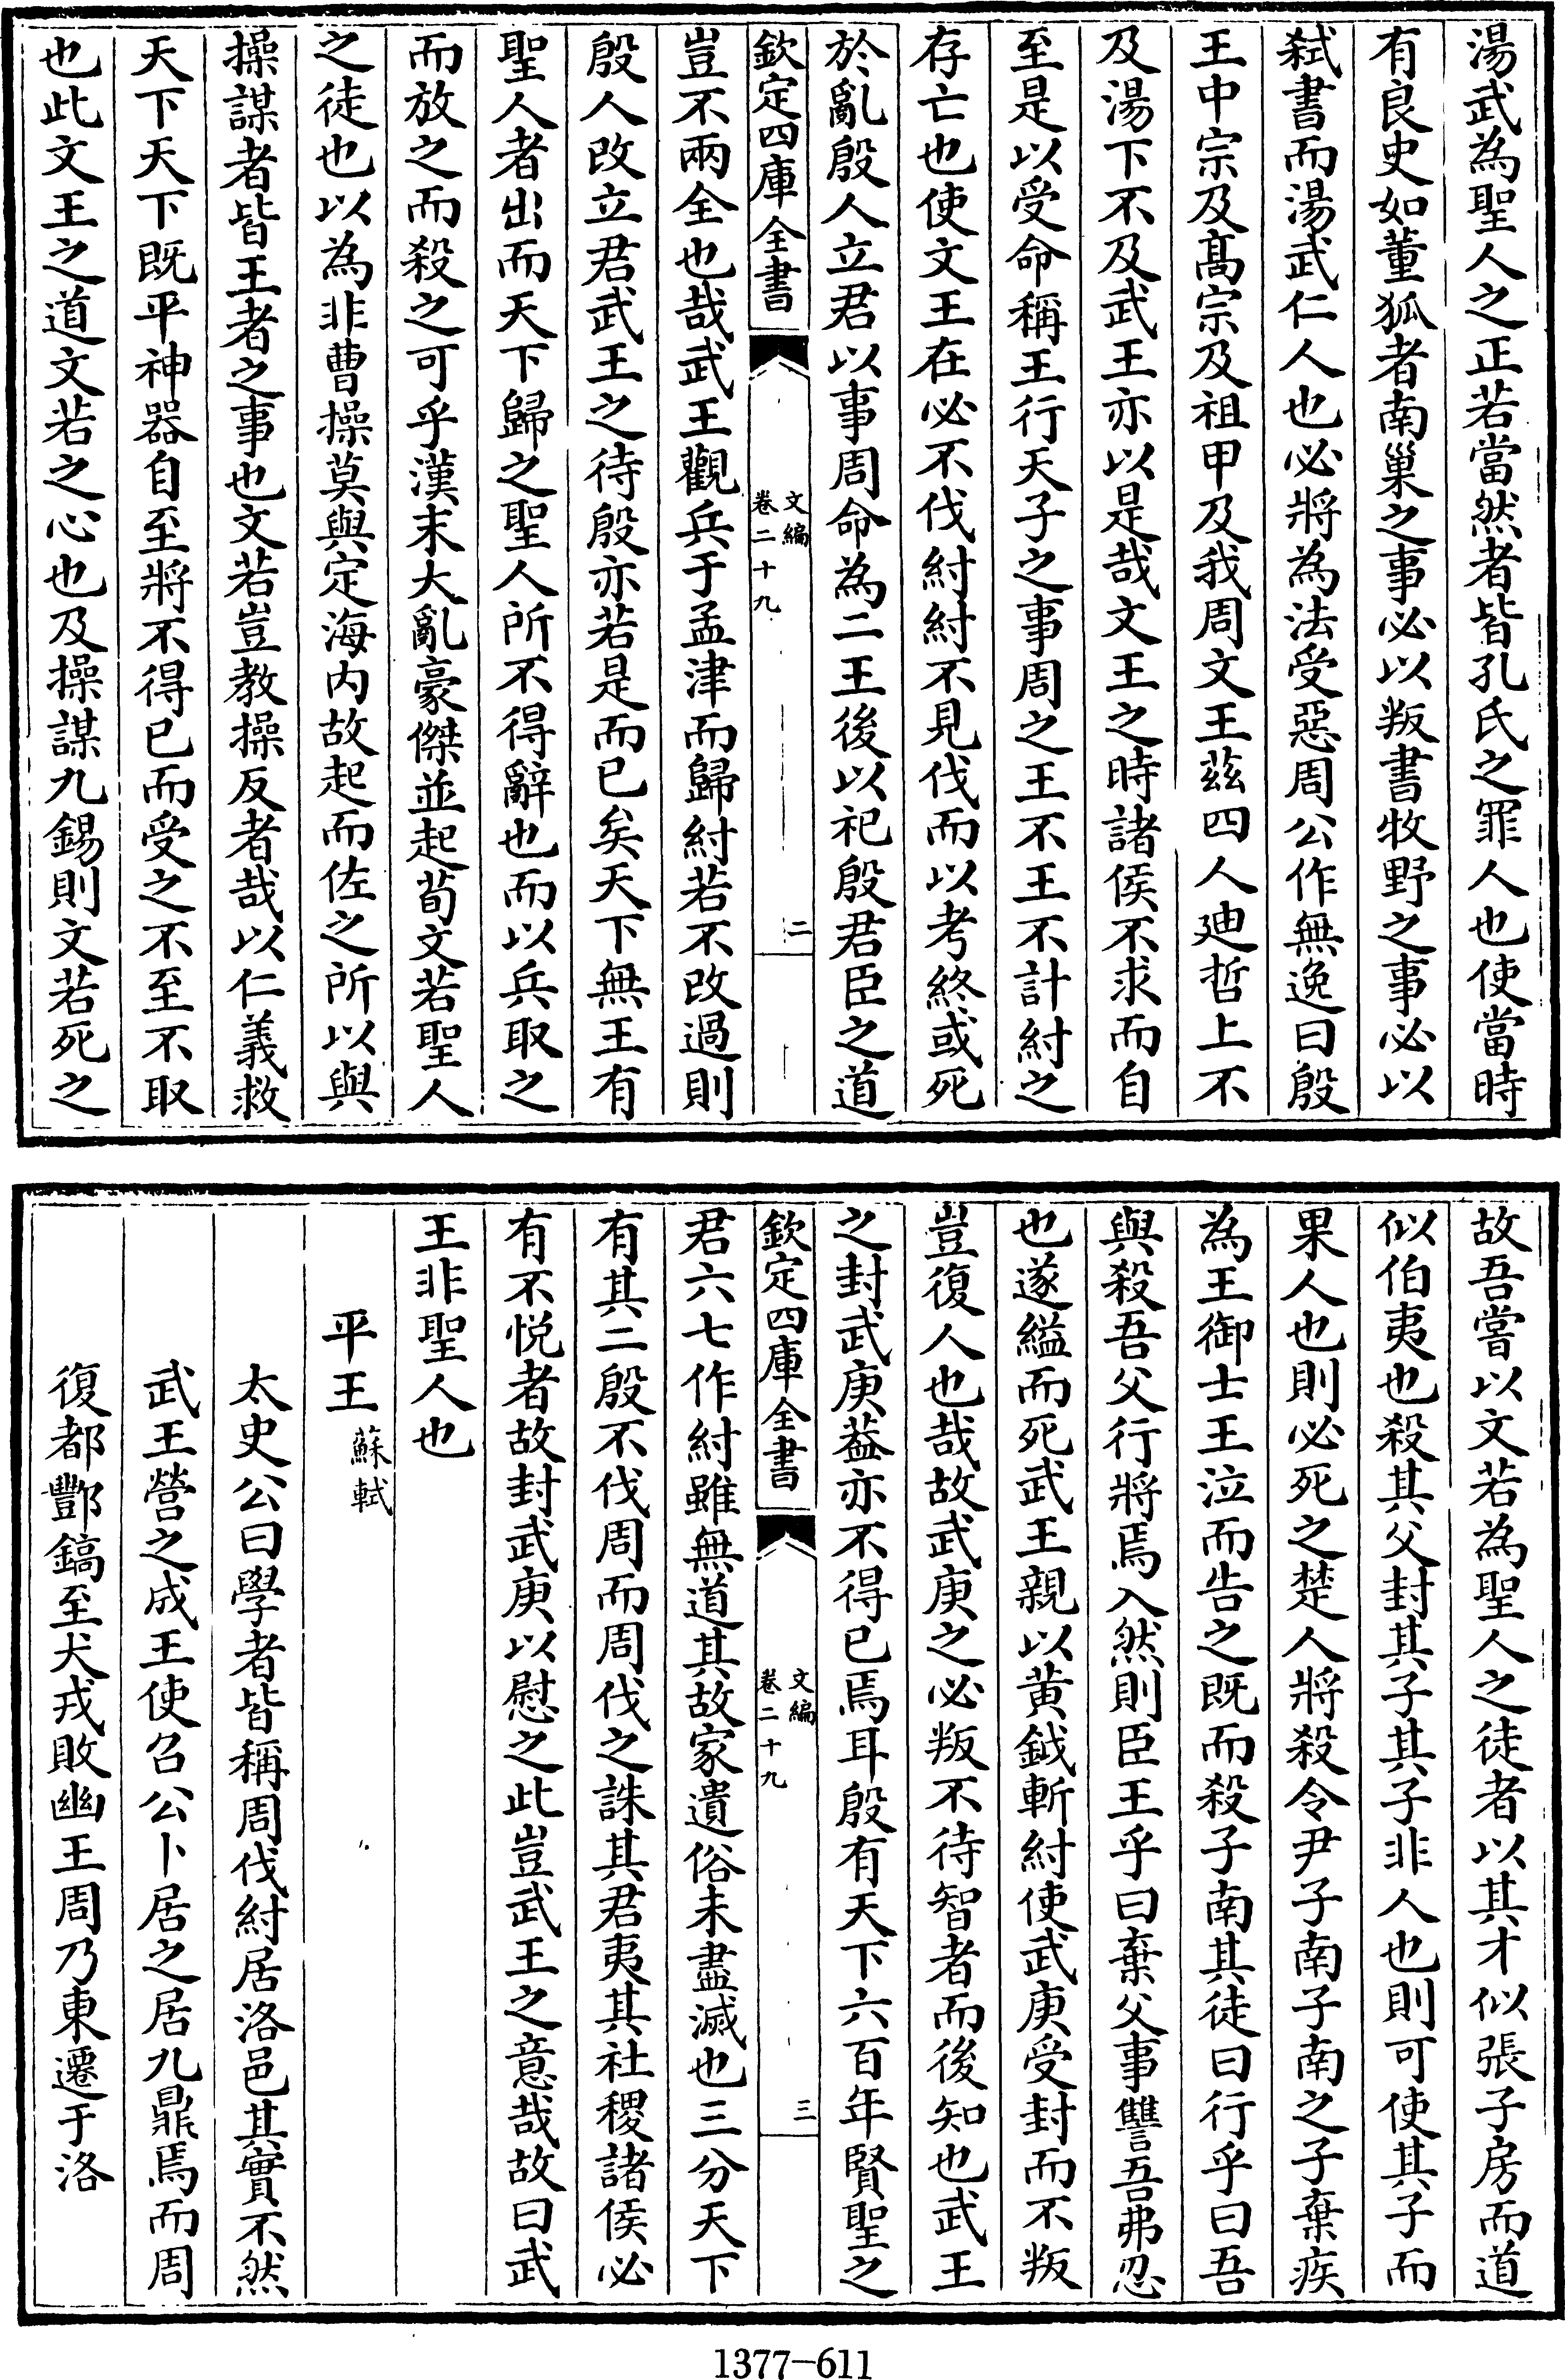 湯武為聖人之正若當然者皆孔氏之罪人也使當時
有良史如董狐者南巢之事必以叛書牧野之事必以
弑書而湯武仁人也必將為法受惡周公作無逸曰殷
王中宗及髙宗及祖甲及我周文王茲四人廸哲上不
及湯下不及武王亦以是哉文王之時諸侯不求而自
至是以受命稱王行天子之事周之王不王不計紂之
存亡也使文王在必不伐紂紂不見伐而以考終或死
於亂殷人立君以事周命為二王後以祀殷君臣之道
欽定四庫全書
文編
卷二十九
二
豈不兩全也哉武王觀兵于孟津而歸紂若不改過則
殷人改立君武王之待殷亦若是而已矣天下無王有
聖人者出而天下歸之聖人所不得辭也而以兵取之
而放之而殺之可乎漢末大亂豪傑並起荀文若聖人
之徒也以為非曹操莫與定海内故起而佐之所以與
操謀者皆王者之事也文若豈教操反者哉以仁義救
天下天下既平神器自至將不得已而受之不至不取
也此文王之道文若之心也及操謀九錫則文若死之
故吾嘗以文若為聖人之徒者以其才似張子房而道
似伯夷也殺其父封其子其子非人也則可使其子而
果人也則必死之楚人將殺令尹子南子南之子棄疾
為王御士王泣而告之既而殺子南其徒曰行乎曰吾
與殺吾父行將焉入然則臣王乎曰棄父事讐吾弗忍
也遂縊而死武王親以黄鉞斬紂使武庚受封而不叛
豈復人也哉故武庚之必叛不待智者而後知也武王
之封武庚葢亦不得已焉耳殷有天下六百年賢聖之
欽定四庫全書
文編
卷二十九
三
君六七作紂雖無道其故家遺俗未盡滅也三分天下
有其二殷不伐周而周伐之誅其君夷其社稷諸侯必
有不悦者故封武庚以慰之此豈武王之意哉故曰武
王非聖人也
平王 蘇軾
太史公曰學者皆稱周伐紂居洛邑其實不然
武王營之成王使召公卜居之居九鼎焉而周
復都酆鎬至犬戎敗幽王周乃東遷于洛
1377-611